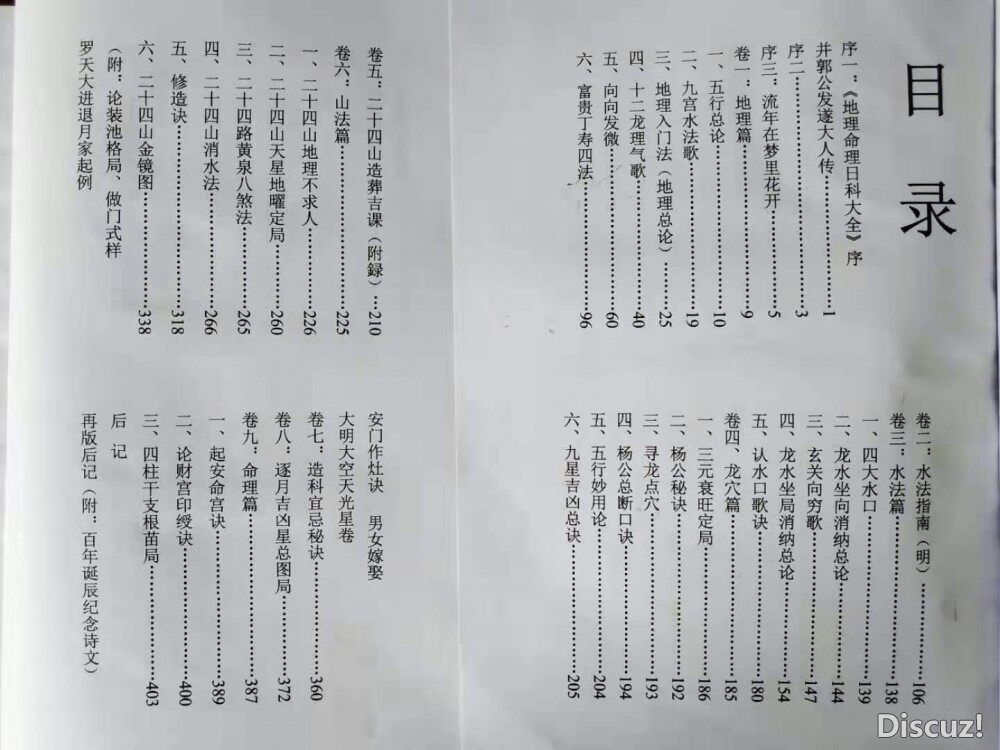 目录
序一：《地理命理日科大全》序
并郭公发遂大人传……1
序二……3
序三：流年在梦里花开……5
卷一：地理篇……9
一、五行总论……10
二、九宫水法歌……19
三、地理入门法（地理总论）……25
四、十二龙理气歌……40
五、向向发微……60
六、富贵丁寿四法……96
卷二：水法指南（明）……106
卷三：水法篇……138
一、四大水口……139
二、龙水坐向消纳总论……144
三、玄关向穷歌……147
四、龙水坐局消纳总论……154
五、认水口歌诀……180
卷四、龙穴篇……185
一、三元衰旺定局……186
二、杨公秘诀……192
三、寻龙点穴……193
四、杨公总断口诀……194
五、五行妙用论……204
六、九星吉凶总诀……205
卷五：二十四山造葬吉课（附録）…210
卷六：山法篇……225
一、二十四山地理不求人……226
二、二十四山天星地曜定局……260
三、二十四路黄泉八煞法……265
四、二十四山消水法……266
五、修造诀……318
六、二十四山金镜图……338
（附：论装池格局、做门式样
罗天大进退月家起例
安门作灶诀 男女嫁娶
大明大空天光星卷
卷七：造科宜忌秘诀……360
卷八：逐月吉凶星总图局……372
卷九：命理篇……387
一、起安命宫诀……389
二、论财宫印绶诀……400
三、四柱干支根苗局……403
后记
再版后记（附：百年诞辰纪念诗文）
Discuz!